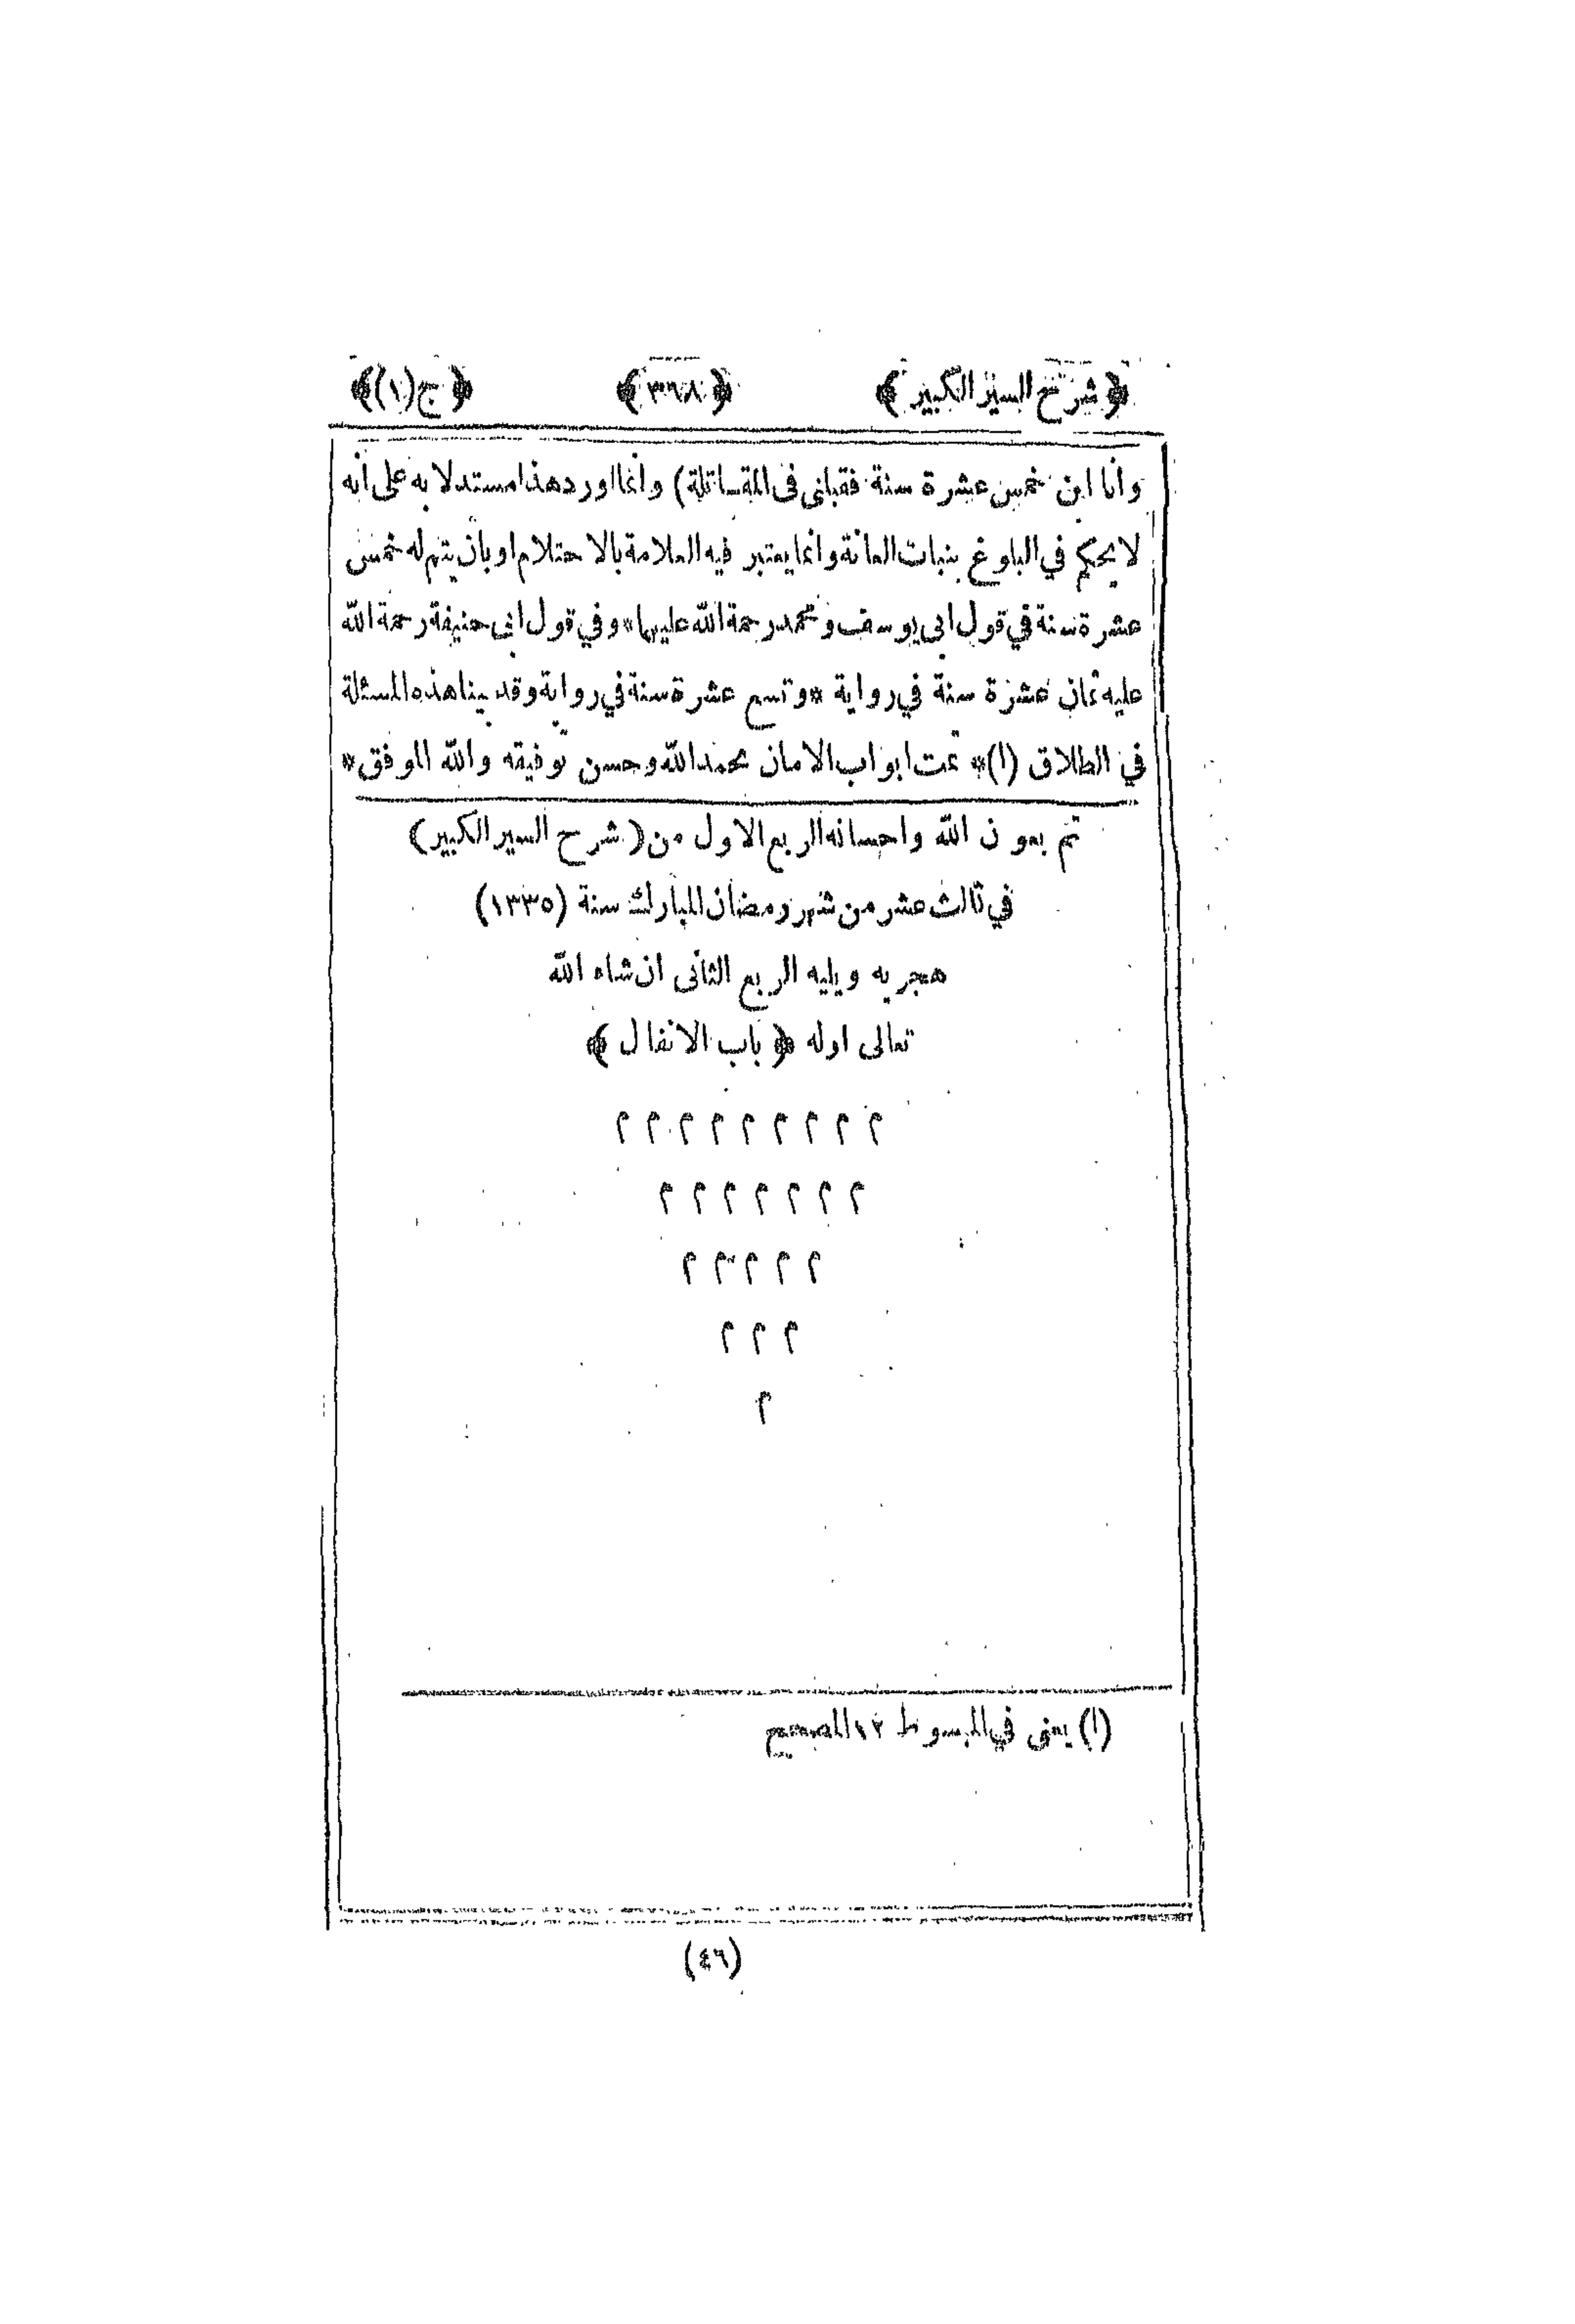 ﴿ شرح السير الكبير ﴾ ﴿ ٣٦٨ ﴾ ﴿ ج(١) ﴾
وانا ابن خمس عشرة سنة فقبلنى فى المقاتلة) وانما اورد هذا مستدلا به على انه
لا يحكم في البلوغ بنبات العانة وانما يعتبر فيه العلامة بالاحتلام او بان يتم له خمس
عشرة سنة في قول ابى يوسف ومحمد رحمة الله عليهما * وفي قول ابى حنيفة رحمة الله
عليه ثمان عشرة سنة في رواية * وتسع عشرة سنة في رواية وقد بينا هذه المسئلة
في الطلاق (١) * تمت ابواب الامان بحمد الله وحسن توفيقه والله الموفق *
تم بعون الله واحسانه الربع الاول من (شرح السير الكبير)
في ثالث عشر من شهر رمضان المبارك سنة (١٣٣٥)
هجريه ويليه الربع الثانى ان شاء الله
تعالى اوله ﴿ باب الانفال ﴾
م م م م م م م م م
م م م م م م م
م م م م م
م م م
م
(١) يعنى في المبسوط ١٢ المصحح
(٤٦)